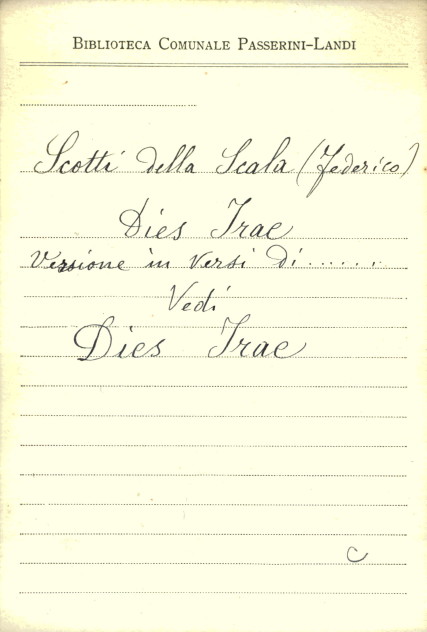 BIBLIOTECA COMUNALE PASSERINI-LANDI
Scotti della Scala (Federico)
Dies Irae
Versione in versi di......
Vedi
Dies Irae
C